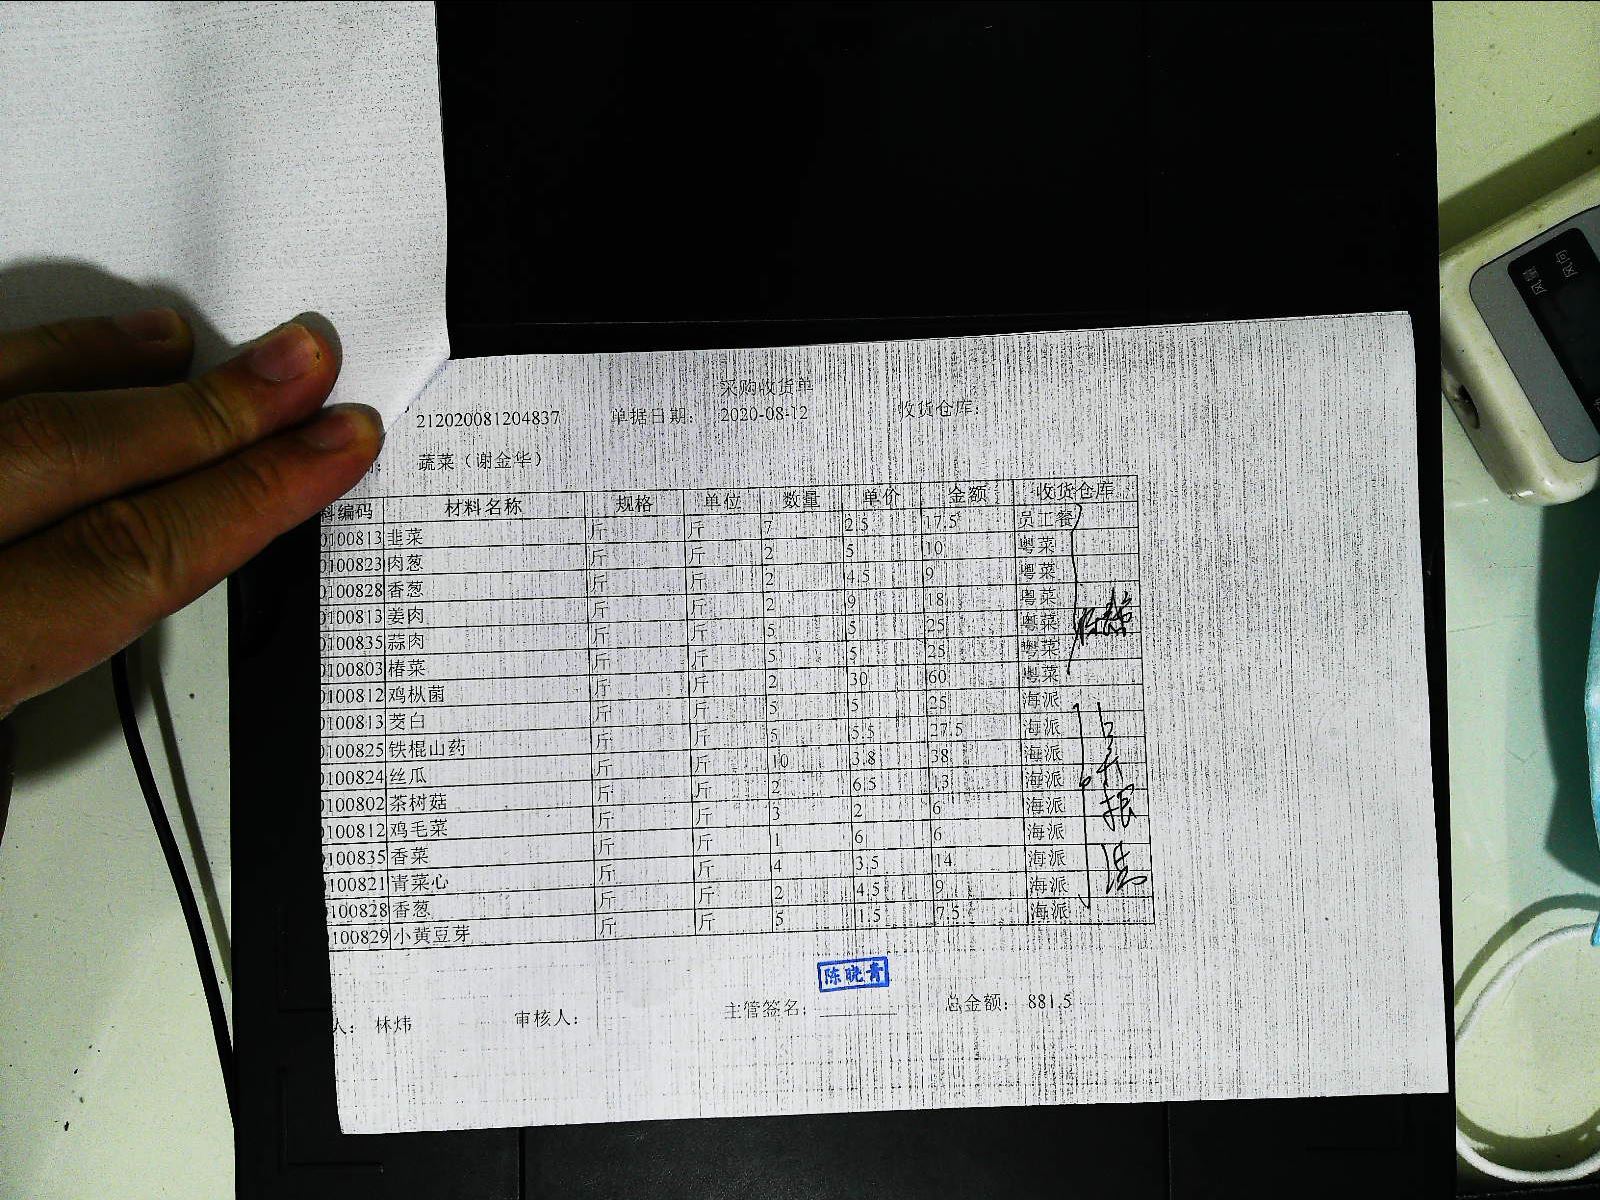 采购收货单
212020081204837 单据日期： 2020-08-12 收货仓库：
蔬菜（谢金华）
料编码 材料名称 规格 单位 数量 单价 金额 收货仓库
0100813 韭菜 斤 斤 7 2.5 17.5 员工餐
0100823 肉葱 斤 斤 2 5 10 粤菜
0100828 香葱 斤 斤 2 4.5 9 粤菜
0100813 姜肉 斤 斤 2 9 18 粤菜
0100835 蒜肉 斤 斤 5 5 25 粤菜
0100803 椿菜 斤 斤 5 5 25 粤菜
0100812 鸡枞菌 斤 斤 2 30 60 粤菜
0100813 茭白 斤 斤 5 5 25 海派
0100825 铁棍山药 斤 斤 5 5.5 27.5 海派
0100824 丝瓜 斤 斤 10 3.8 38 海派
0100802 茶树菇 斤 斤 2 6.5 13 海派
0100812 鸡毛菜 斤 斤 3 2 6 海派
0100835 香菜 斤 斤 1 6 6 海派
0100821 青菜心 斤 斤 4 3.5 14 海派
0100828 香葱 斤 斤 2 4.5 9 海派
0100829 小黄豆芽 斤 斤 5 1.5 7.5 海派
陈晓青
人： 林炜 审核人： 主管签名： 总金额： 881.5
风量 风向